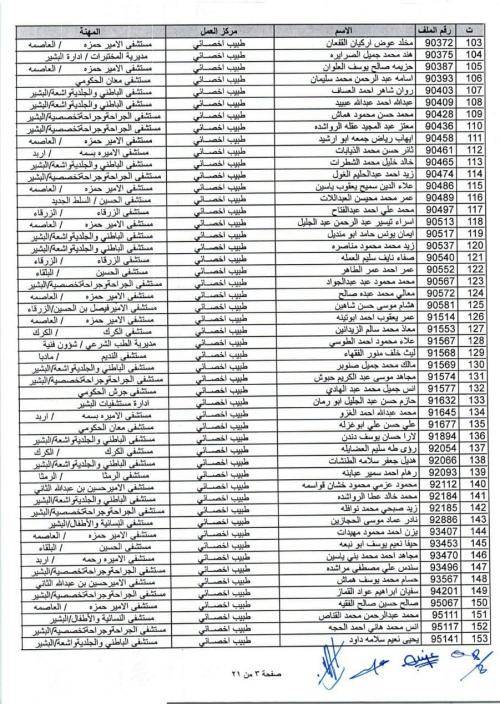 ت رقم الملف الاسم مركز العمل المهنة
103 90372 مخلد عوض اركيان الفقعان طبيب اخصائي مستشفى الامير حمزه / العاصمه
104 90375 هند محمد جميل الصرايره طبيب اخصائي مديرية المختبرات / ادارة البشير
105 90387 حزيمه صالح يوسف العلوان طبيب اخصائي مستشفى الامير حمزه / العاصمه
106 90393 اسامه عبد الرحمن محمد سليمان طبيب اخصائي مستشفى معان الحكومي
107 90403 روان شاهر احمد العساف طبيب اخصائي مستشفى الباطني والجلدية واشعة/البشير
108 90409 عبدالله احمد عبدالله عبيد طبيب اخصائي مستشفى الباطني والجلدية واشعة/البشير
109 90428 محمد حسن محمود هماش طبيب اخصائي مستشفى الجراحة وجراحة تخصصية/البشير
110 90436 معتز عبد المجيد عقله الرواشده طبيب اخصائي مستشفى الباطني والجلدية واشعة/البشير
111 90458 ايهاب رياض جمعه ابو ارشيد طبيب اخصائي مستشفى الجراحة وجراحة تخصصية/البشير
112 90461 ثائر حسن محمد الذيابات طبيب اخصائي مستشفى الاميره بسمه / اربد
113 90465 خالد خليل محمد الشطرات طبيب اخصائي مستشفى الباطني والجلدية واشعة/البشير
114 90474 زيد احمد عبدالحليم الغول طبيب اخصائي مستشفى الجراحة وجراحة تخصصية/البشير
115 90486 علاء الدين سميح يعقوب ياسين طبيب اخصائي مستشفى الامير حمزه / العاصمه
116 90489 عمر محمد محيسن العبداللات طبيب اخصائي مستشفى الحسين / السلط الجديد
117 90497 محمد علي احمد عبدالفتاح طبيب اخصائي مستشفى الزرقاء / الزرقاء
118 90513 اسراء تيسير عبد الرحمن عبد الجليل طبيب اخصائي مستشفى الامير حمزه / العاصمه
119 90517 ايمان يونس حامد ابو منديل طبيب اخصائي مستشفى الباطني والجلدية واشعة/البشير
120 90537 زيد محمد محمود مناصره طبيب اخصائي مستشفى الباطني والجلدية واشعة/البشير
121 90540 صفاء نايف سليم العمله طبيب اخصائي مستشفى الزرقاء / الزرقاء
122 90552 عمر احمد عمر الطاهر طبيب اخصائي مستشفى الحسين / البلقاء
123 90567 محمد محمود عبد عبدالجواد طبيب اخصائي مستشفى الجراحة وجراحة تخصصية/البشير
124 90572 معالي محمد عبده صالح طبيب اخصائي مستشفى الامير حمزه / العاصمه
125 90581 هشام موسى حسن شاهين طبيب اخصائي مستشفى الامير فيصل بن الحسين/الزرقاء
126 91514 عمر يعقوب احمد ابوتينه طبيب اخصائي مستشفى الامير حمزه / العاصمه
127 91553 معاذ محمد سالم الزيدانين طبيب اخصائي مستشفى الكرك / الكرك
128 91567 علاء محمود احمد الطوسي طبيب اخصائي مديرية الطب الشرعي / شؤون فنية
129 91568 ليث خلف منور الفقهاء طبيب اخصائي مستشفى النديم / مادبا
130 91569 مالك محمد جميل صنوبر طبيب اخصائي مستشفى الباطني والجلدية واشعة/البشير
131 91574 مجاهد موسى عبد الكريم حبوش طبيب اخصائي مستشفى الجراحة وجراحة تخصصية/البشير
132 91577 انس جميل محمد عبد الهادي طبيب اخصائي مستشفى جرش الحكومي
133 91632 حازم حسن عبد الجليل ابو رمان طبيب اخصائي ادارة مستشفيات البشير
134 91645 محمد عبدالله احمد الغزو طبيب اخصائي مستشفى الاميره بسمه / اربد
135 91677 علي حسن علي ابوغزله طبيب اخصائي مستشفى معان الحكومي
136 91894 لارا حسان يوسف دندن طبيب اخصائي مستشفى الباطني والجلدية واشعة/البشير
137 92054 رؤى طه سليم العضايله طبيب اخصائي مستشفى الباطني والجلدية واشعة/البشير
138 92066 هديل جعفر سلامه الطنشات طبيب اخصائي مستشفى الجراحة وجراحة تخصصية/البشير
139 92093 رهام احمد سمير عبابنه طبيب اخصائي مستشفى الرمثا / الرمثا
140 92112 محمود عزمي محمود خشان قواسمه طبيب اخصائي مستشفى الامير حسين بن عبدالله الثاني
141 92184 محمد خالد عطا الرواشده طبيب اخصائي مستشفى الباطني والجلدية واشعة/البشير
142 92185 زيد صبحي محمد نوافله طبيب اخصائي مستشفى الجراحة وجراحة تخصصية/البشير
143 92886 نادر عماد موسى الحجازين طبيب اخصائي مستشفى النسائية والأطفال/البشير
144 93407 يزن احمد محمود مهيدات طبيب اخصائي مستشفى الامير حمزه / العاصمه
145 93453 حيفا نعيم يوسف ابو نبعه طبيب اخصائي مستشفى الحسين / البلقاء
146 93470 مجاهد احمد محمد بني ياسين طبيب اخصائي مستشفى الاميره رحمه / اربد
147 93496 سندس علي مصطفى مراشده طبيب اخصائي مستشفى الجراحة وجراحة تخصصية/البشير
148 93567 حسام محمد يوسف هماش طبيب اخصائي مستشفى الامير حسين بن عبدالله الثاني
149 94201 سفيان ابراهيم عواد القماز طبيب اخصائي مستشفى الجراحة وجراحة تخصصية/البشير
150 95067 صالح حسين صالح الفقيه طبيب اخصائي مستشفى الامير حمزه / العاصمه
151 95111 محمد عبدالرحمن محمد القناص طبيب اخصائي مستشفى النسائية والأطفال/البشير
152 95117 انس محمد هاني احمد الحجه طبيب اخصائي مستشفى الجراحة وجراحة تخصصية/البشير
153 95141 يحيى نعيم سلامه داود طبيب اخصائي مستشفى الباطني والجلدية واشعة/البشير
صفحة ٣ من ٢١